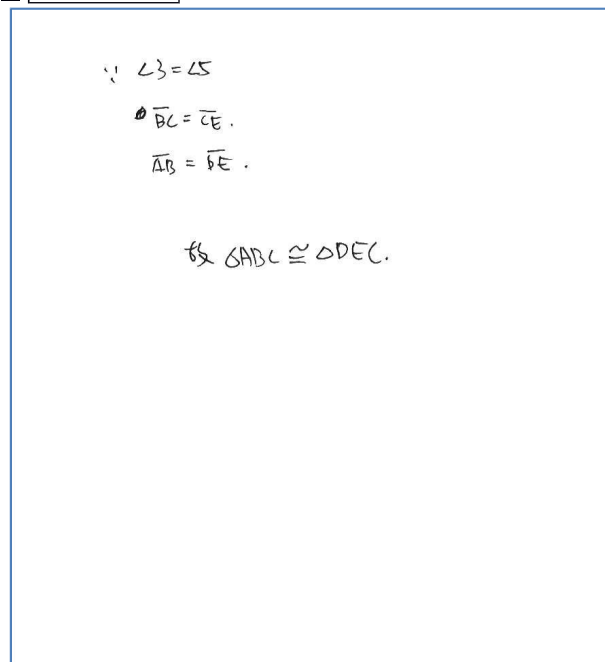 ∵ ∠3=∠5
BC = CE .
AB = DE .
故 △ABC ≅ △DEC.